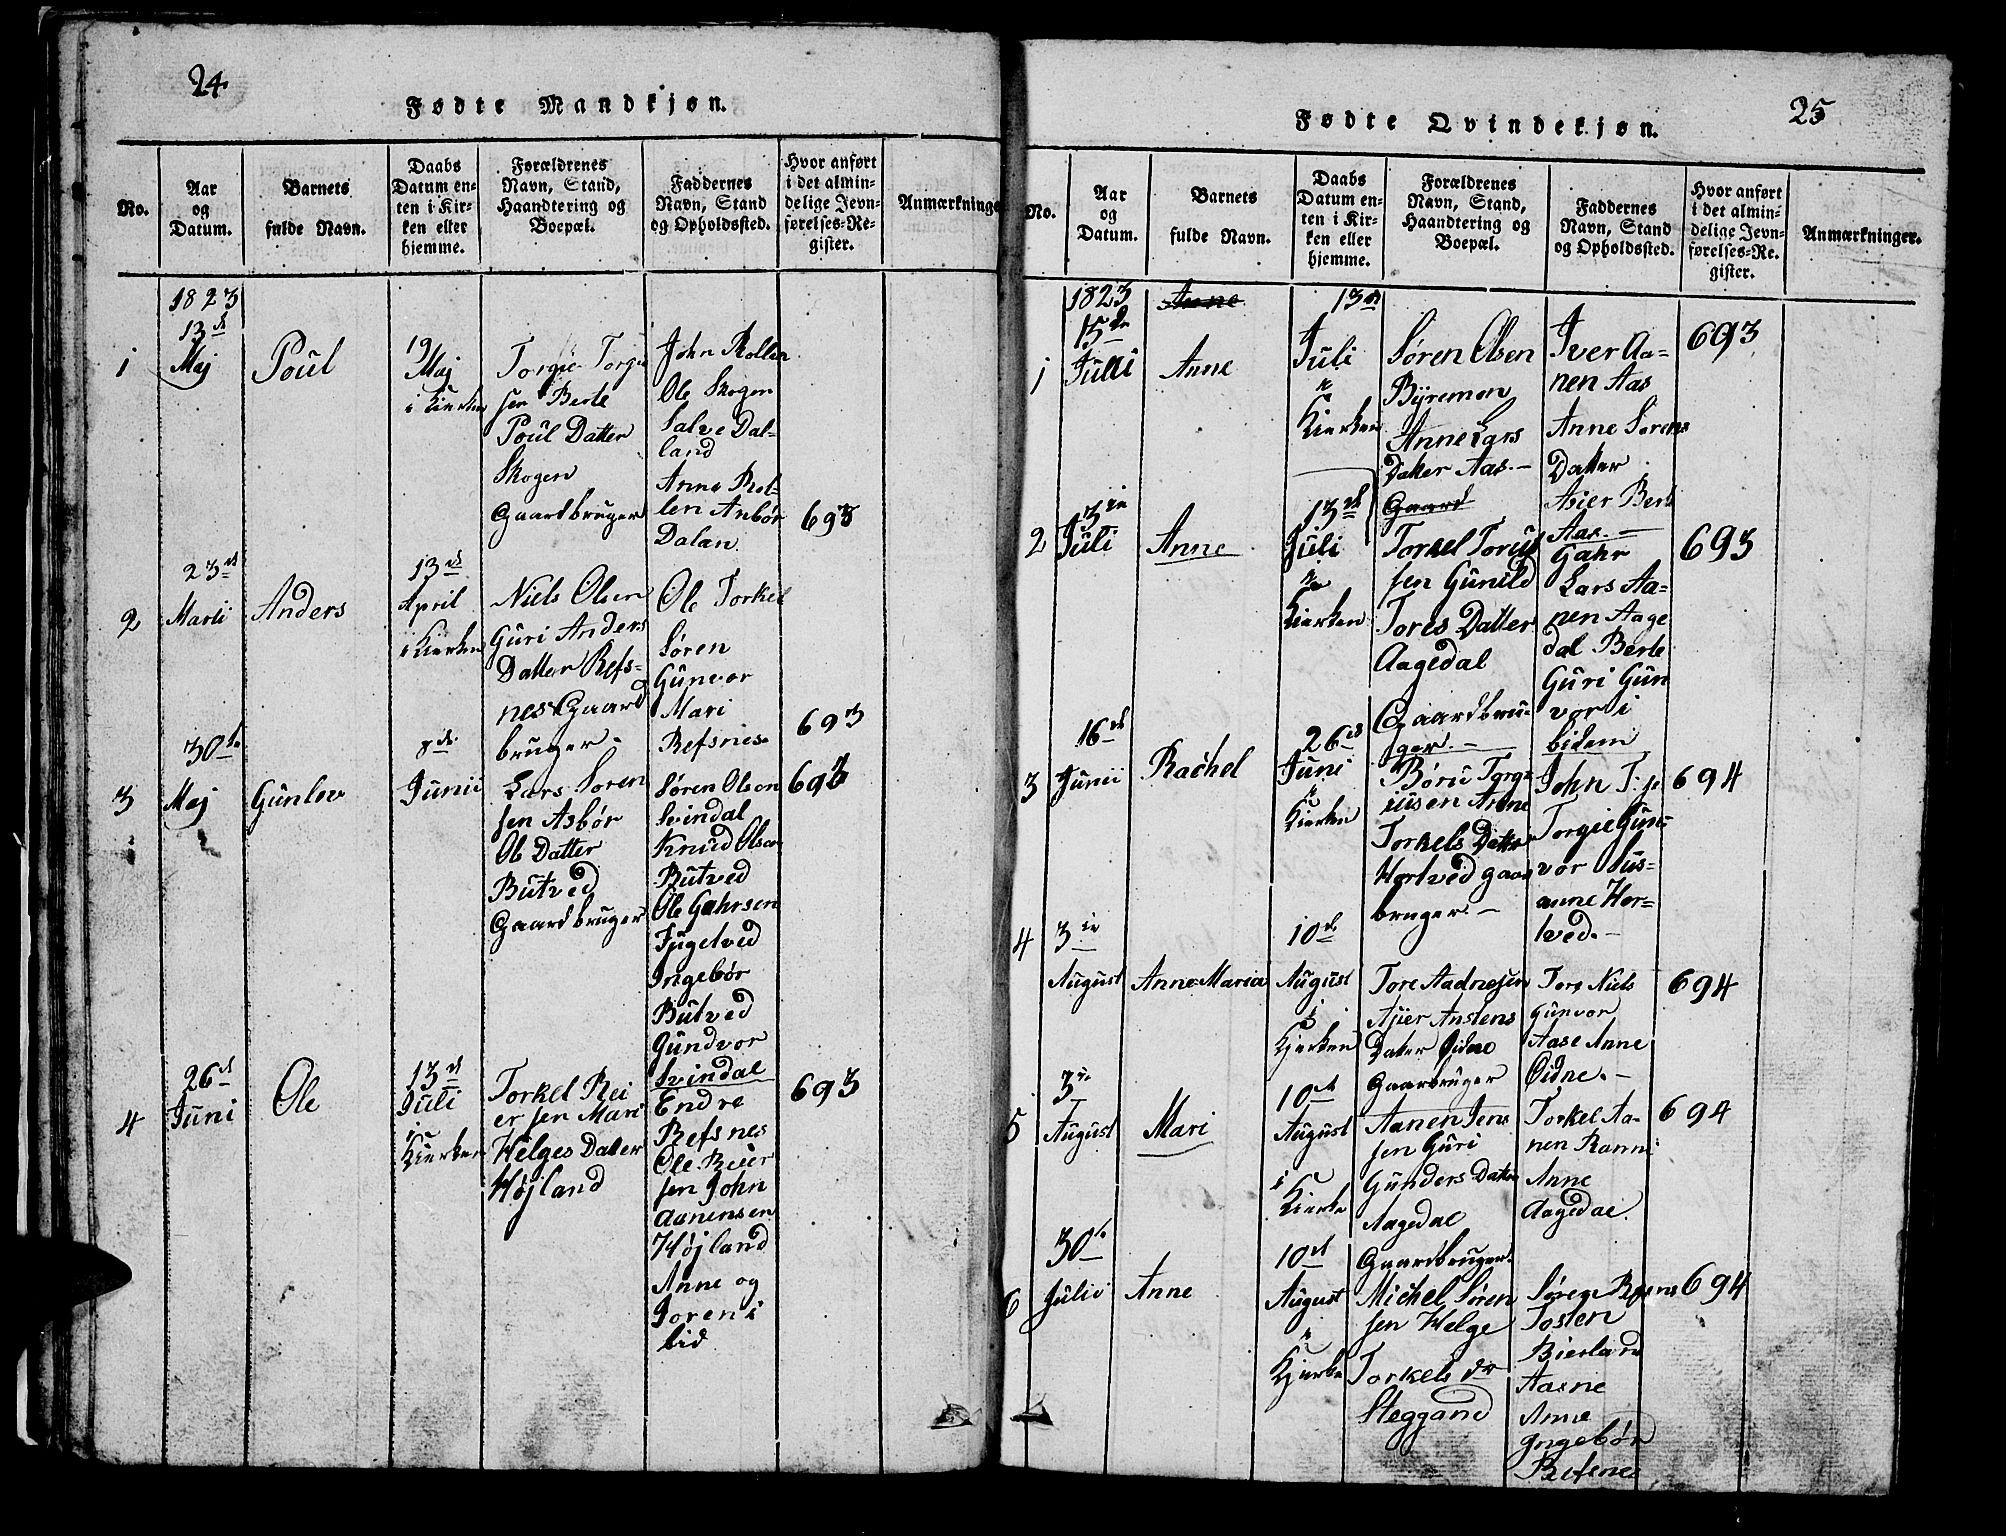 24
Fødte Mandkjøn.
No.
Aar
og
Datum.
Barnets
fulde Navn.
Daabs
Datum en-
ten i Kir-
ken eller
hjemme.
Forældrenes
Navn, Stand,
Haandtering og
Boepæl.
Faddernes
Navn, Stand
og Opholdssted.
Hvor anført
i det almin-
delige Jevn-
førelses-Re-
gister.
Anmærkninge
1
1823
13de
Maj
Poul
19
Maj
i Kierken
Torgie Torgie
sen Berte
Poul Datter
Skogen
Gaardbruger
John Rollen
Ole Skogen
Salve Dal-
land
Anne Rol-
len Anbør
Dalan
693
2
23de
Marti
Anders
13de
April
i Kierken
Niels Olsen
Guri Anders
Datter Refs-
nes Gaard
bruger.
Ole Torkel
Søren
Gunvor
Mari
Refsnes
693
3
30te
Maj
Gunlov
8de
Junii
Lars Soren
sen Asbør
Ole Datter
Butved
Gaardbruger
Søren Olson
Svindal
Knud Olson
Butved
Ole Gahrsen
Ingebør
Butved
Gundvor
Svindal
693
4
26de
Juni
Ole
13de
Juli
i
Kierken
Torkel Rei
er sen Mari
Helges Datter
Højland
Endre
Refsnes
Ole Reier
sen John
Aanensen
Højland
Anne og
Joren i
bid
693
25
Fødte Qvindekjøn.
No.
Aar
og
Datum.
Barnets
fulde Navn.
Daabs
Datum en-
ten i Kir-
ken eller
hjemme.
Forældrenes
Navn, Stand,
Haandtering og
Boepæl.
Faddernes
Navn, Stand
og Opholdssted.
Hvor anført
i det almin-
delige Jevn-
førelses-Re-
gister.
Anmærkninger.
1
1823
15de
Julii
Anne
Anne
13de
Juli
i
Kierken
Søren Olsen
Byremon
Anne Lars
Datter Aas.-
Gaard
Iver Aa-
nen Aas
Anne Sorens
Datter
Asier Berte
Aas.-
693
2
3die
Juli
Anne
13de
Juli
i
Kierken
Torkel Torius
sen Gunild
Tores Datter
Aagedal
Gaardbru-
ger.-
Gahr
Lars Aa-
nen Aage
dal Berte
Guri Gun
vor i
bidem
693
3
16de
Junii
Rachel
26de
Juni
i
Kierken
Børu Torge
iusen Anne
Torkels Datter
Hortved gaard
bruger.-
John
Torgie Gun-
vor Sus-
anne Hor-
tved.-
694
4
3die
August
Anne Maria
10de
August
i
Kjerken
Tore Aadnesen
Asier Anstens
Datter Øidne
Gaarbruger
Tore Niels
Gunvor
Aase Anne
Øidne.-
694
5
3die
August
Mari
10de
August
i
Kierke
Aanen Jens
sen Guri
Gunders Datter
Aagedal
Gaardbruger.
Torkel Aa-
nen Ranni
Anne
Aagedal.
694
6
30te
Julii
Anne
10de
August
i
Kjerke
Michel Søren
sen Helge
Torkels dr
Steggand
Søren Refsnes
Tosten
Bierland
Aasne
Anne
Ingebør
Refsnes
694